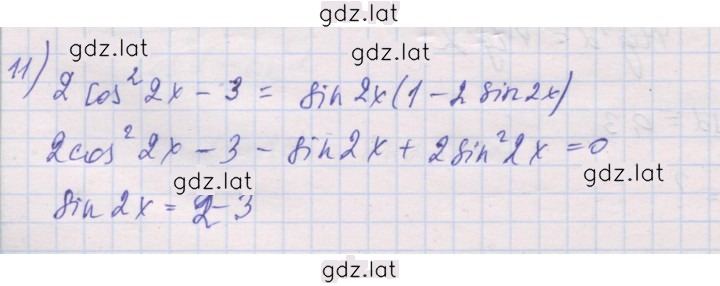 gdz.lat gdz.lat
11) 2 cos² 2x - 3 = sin 2x (1 - 2 sin 2x)
2cos² 2x - 3 - sin 2x + 2sin² 2x = 0
gdz.lat gdz.lat
sin 2x = 2 - 3
gdz.lat